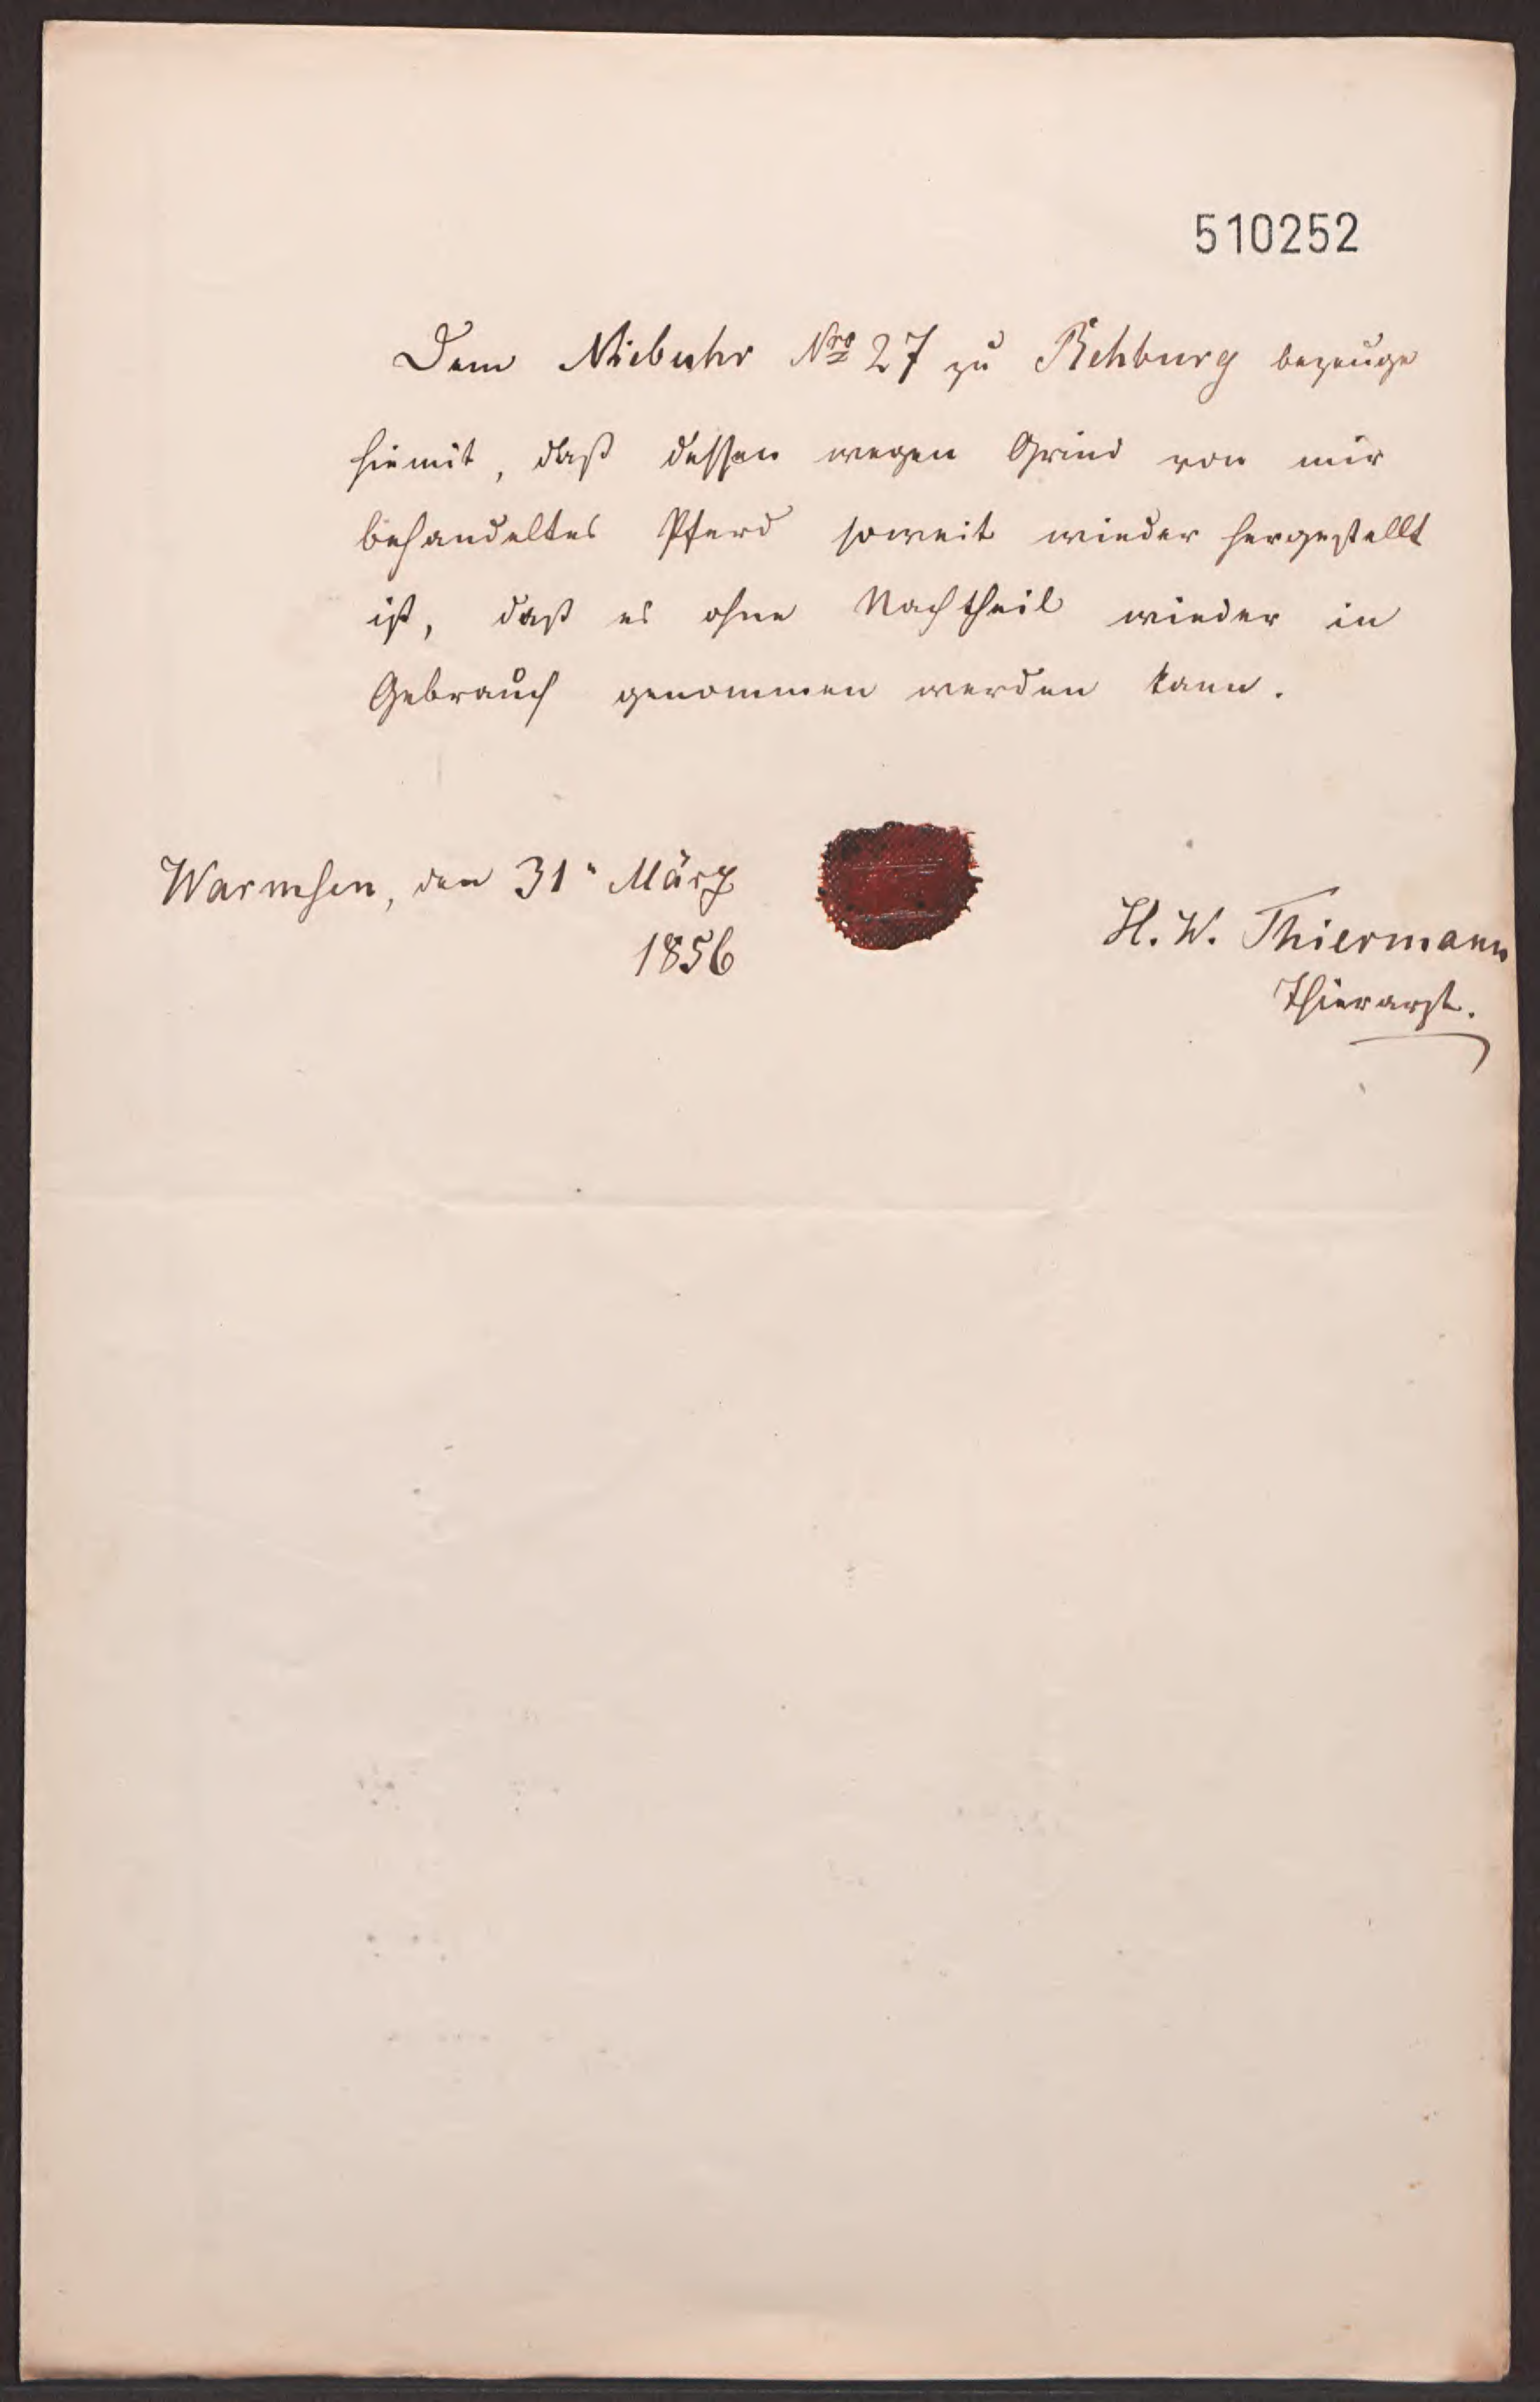 510252
Dem Niebuhr Nro 27 zu Rehburg bezeuge
hiemit, daß dessen wegen Grind von mir
behandeltes Pferd soweit wieder hergestellt
ist, daß es ohne Nachtheil wieder in
Gebrauch genommen werden kann.
Warmsen, den 31" März
1856
H. W. Thiermann
Thierarzt.